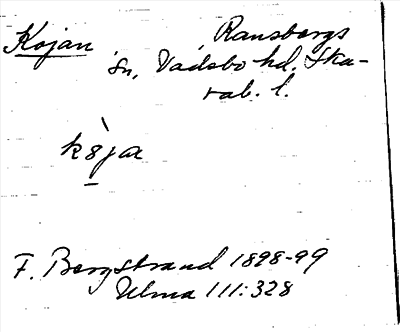 Kojan Ransbergs
sn, Vadsbo hd. Ska-
rab. l.
kȣja
F. Bergstrand 1898-99
Ulma 111:328